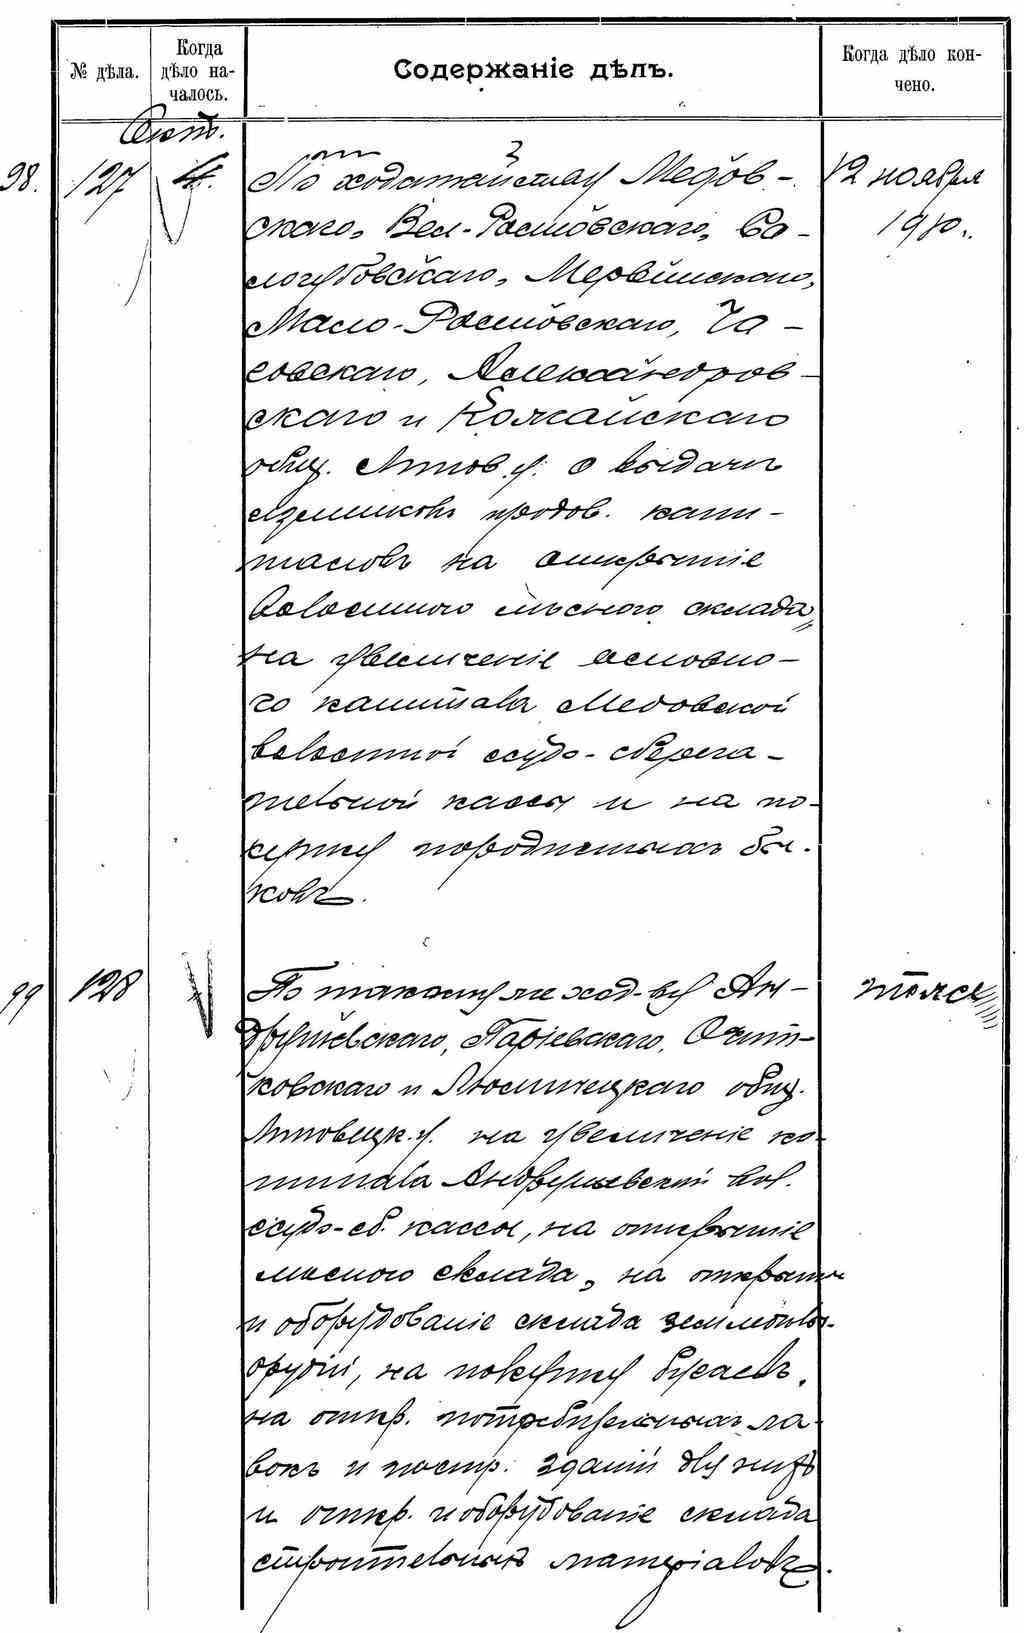 № дѣла.
Когда дѣло началось.
Содержаніе дѣлъ.
Когда дѣло кончено.
Сент.
98. 127 4. По ходатайствам Медов-
12 ноября
скаго, Вел-Ростовскаго, Со-
1910.
логубовскаго, Мервинскаго,
Мало-Ростовскаго, Ча-
совскаго, Александров-
скаго и
общ. Липов. у. о выдачѣ
излишковъ продов. капи-
таловъ на открытіе
волостного лѣсного склада,
на увеличеніе основно-
го капитала Медовской
волостной ссудо-сберега-
тельной кассы и на по-
купку породистыхъ бы-
ковъ.
99 128 По таковому же ход-ву Ан-
тоже
друшевскаго, Паріевскаго, Очит-
ковскаго и Люлинецкаго общ.
Липовецк. у. на увеличеніе ка-
питала Андрушевской вол.
ссудо-сб. кассы, на открытіе
лѣсного склада, на открытіе
и оборудованіе склада землед.
орудій, на покупку бугаевъ,
на откр. потребительныхъ ла-
вокъ и постр. зданій для нихъ
и откр. и оборудованіе склада
строительныхъ матеріаловъ.